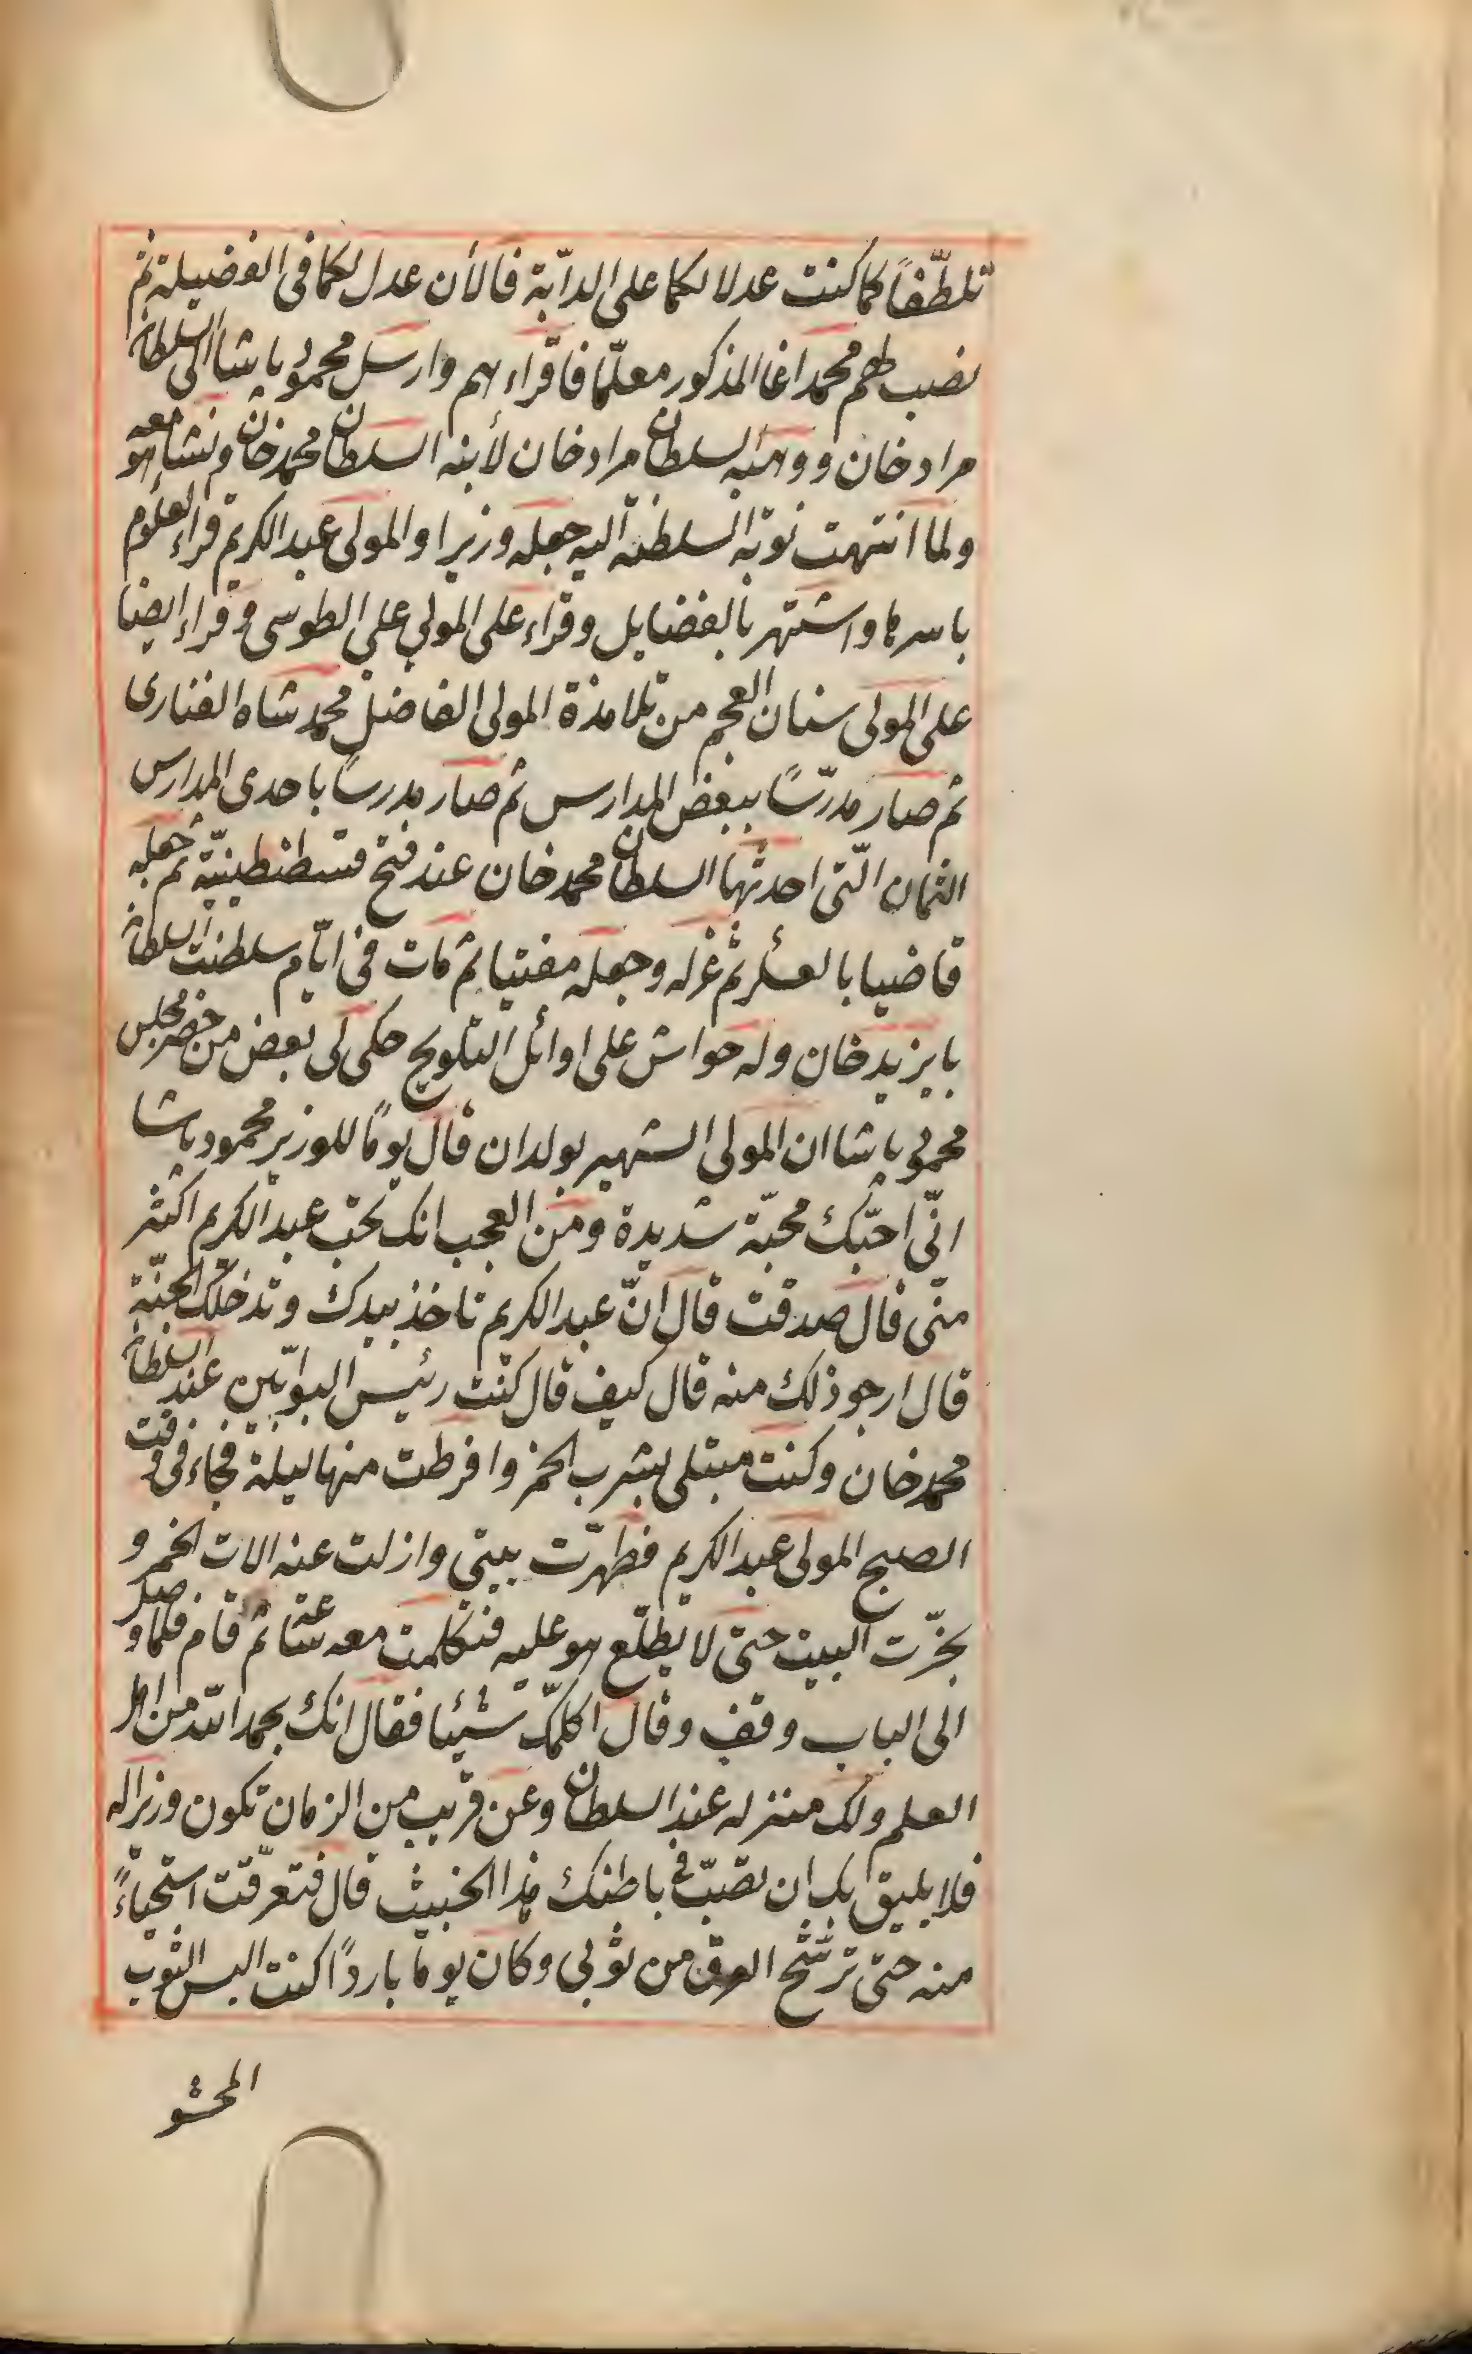 تلطّفاً كما كنت عدلا لكما على الدابّة فالأن عدل لكما فى الفضيلة ثم
نصب لهم محمد اغا المذكور معلّما فاقراءهم وارسل محمود پاشا الى السلطان
مراد خان ووهبه السلطان مراد خان لأبنه السلطان محمد خان ونشا هو معه
ولما انتهت نوبة السلطنة اليه جعله وزيرا والمولى عبد الكريم قراء العلوم
باسرها واشتهر بالفضايل وقراء على المولى على الطوسى وقراء ايضا
على المولى سنان العجم من تلامذة المولى الفاضل محمد شاه الفنارى
ثم صار مدرّسًا ببعض المدارس ثم صار مدرسًا باحدى المدارس
الثمان الّتى احدثها السلطان محمد خان عند فتح قسطنطينيّة ثم جعله
قاضيا بالعسكر ثم عزله وجعله مفتيا ثم مات فى ايّام سلطنت السلطان
بايزيد خان وله حواش على اوائل التلويح حكى لى بعض من حضر مجلس
محمود پاشا ان المولى الشهير بولدان قال يومًا للوزير محمود پاشا
انّى احبّك محبّة شديدة ومن العجب انك تحب عبد الكريم اكثر
منّى قال صدقت قال انّ عبد الكريم تاخذ بيدك وتدخلك الجنّة
قال ارجو ذلك منه قال كيف قال كنت رئيس البوابين عند السلطان
محمد خان وكنت مبتلى بشرب الخمر وافرطت منها ليلة فجاء فى وقت
الصبح المولى عبد الكريم فطهّرت بيتى وازلت عنه الات الخمر و
بخّرت البيت حتى لا يطّلع هو عليه فتكلمت معه ثم قام فلما وصل
الى الباب وقف وقال اكلمّك شيئا فقال انك بحمد الله من اهل
العلم ولك منزله عند السلطان وعن قريب من الزمان تكون وزيرا له
فلا يليق بك ان تصبّ فى باطنك هذا الخبيث قال فتعرّقت استحياءً
منه حتى ترشّح العرق من ثوبى وكان يوما باردًا كنت البس الثوب
المحشو